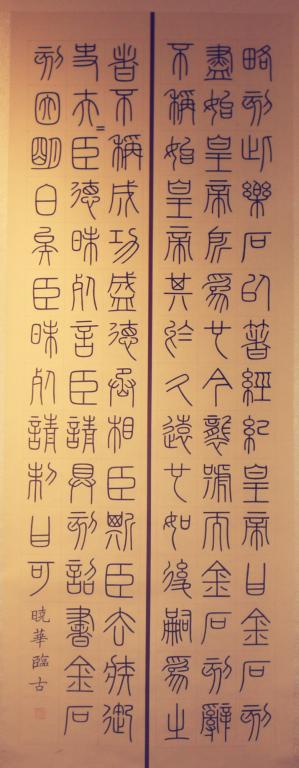 略刻此樂石以著經紀皇帝曰金石刻
盡始皇帝所為也今襲號而金石刻辭
不稱始皇帝其於久遠也如後嗣為之
者不稱成功盛德丞相臣斯臣去疾御
史夫=臣德昧死言臣請具刻詔書金石
刻因明白矣臣昧死請制曰可
曉華臨古